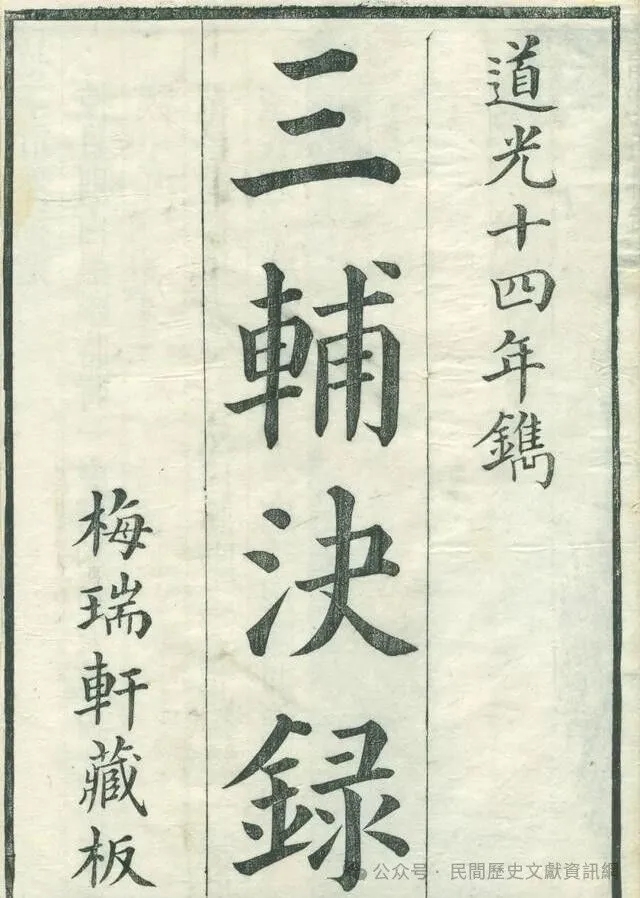 道光十四年鐫
三輔決録
梅瑞軒藏板
公众号 · 民間歷史文獻資訊網